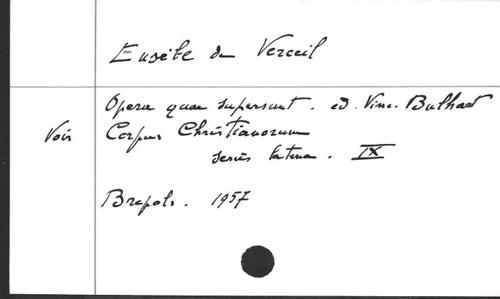 Eusèbe de Verceil
Opera quae supersunt. ed. Vinc. Bulhart
Voir Corpus Christianorum
series latina. IX
Brepols. 1957